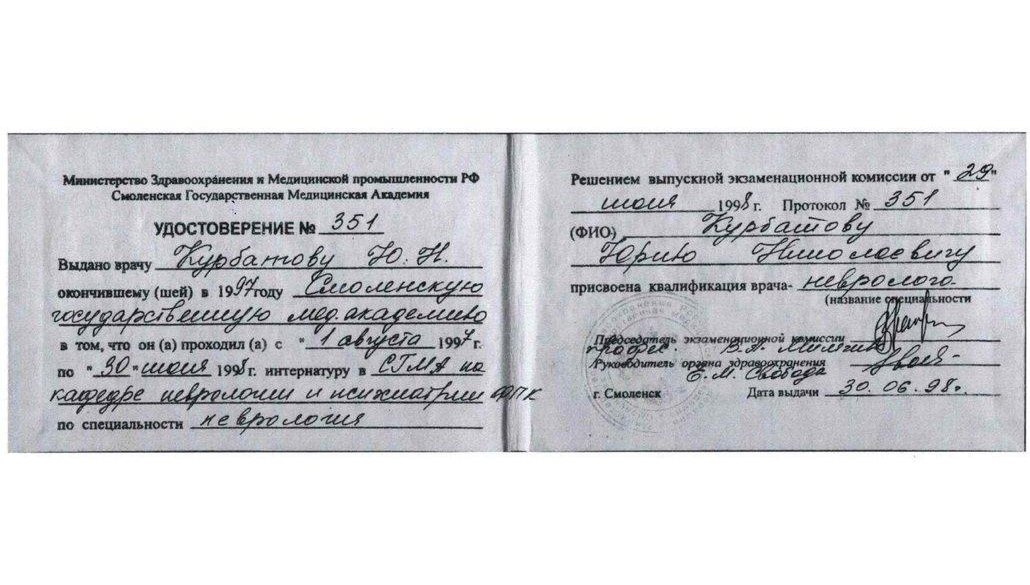 Министерство Здравоохранения и Медицинской промышленности РФ
Смоленская Государственная Медицинская Академия
УДОСТОВЕРЕНИЕ № 351
Выдано врачу Курбатову Ю. Н.
окончившему (шей) в 1997 году Смоленскую
государственную мед. академию
в том, что он (а) проходил (а) с "1 августа 1997 г.
по "30" июня 1998 г. интернатуру в СГМА на
кафедре неврологии и психиатрии ФПК
по специальности неврология
Решением выпускной экзаменационной комиссии от "29"
июня 1998 г. Протокол № 351
(ФИО) Курбатову
Юрию Николаевичу
присвоена квалификация врача- невролога
(название специальности
Председатель экзаменационной комиссии
профес. В.А.
Руководитель органа здравоохранения
Е.М. Свобода
г. Смоленск Дата выдачи 30.06.98г.